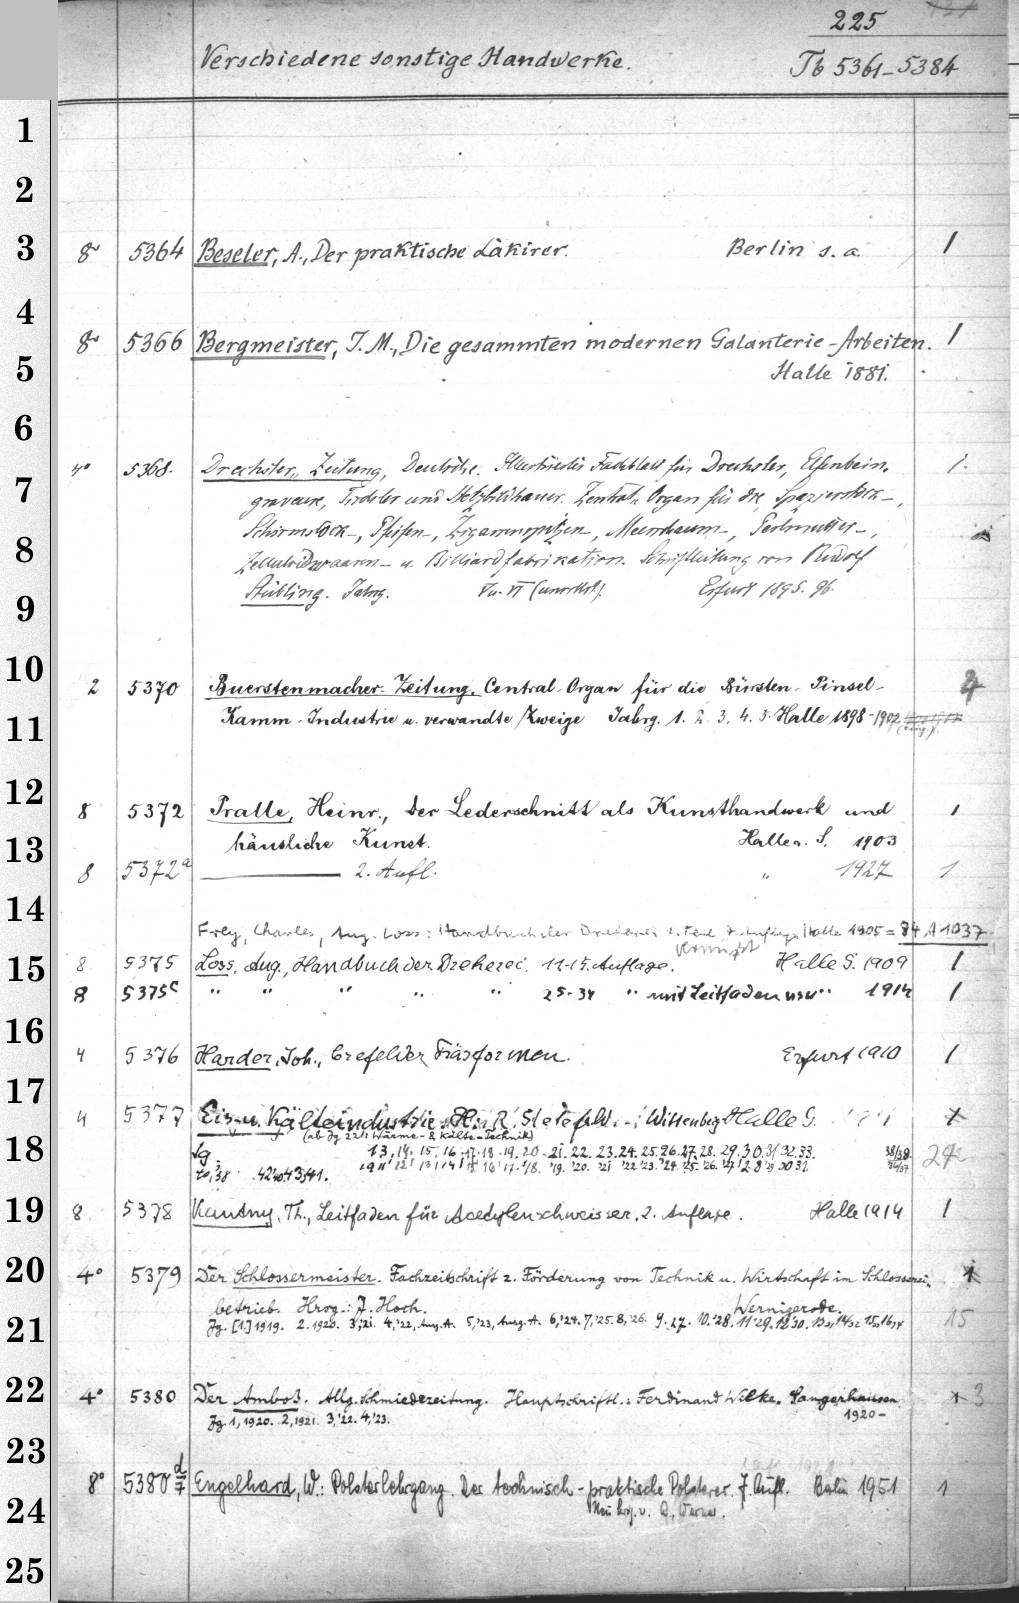 225
Verschiedene sonstige Handwerke. Tb 5361-5384
1
2
3 8° 5364 Beseler, A., Der praktische Lakirer. Berlin s. a. 1
4 8° 5366 Bergmeister, J. M., Die gesammten modernen Galanterie-Arbeiten. 1
5 Halle 1881.
6
4° 5368. Drechsler-Zeitung, Deutsche. Illustriertes Fachblatt für Drechsler, Elfenbein- 1.
7 graveure, Tischler und Holzbildhauer. Zentral-Organ für die Spazierstock-,
Schirmstock-, Pfeifen-, Zigarrenspitzen-, Meerschaum-, Perlmutter-,
8 Zelluloidwaaren- u. Billiardfabrikation. Schriftleitung von Rudolf
9 Stübling. Jahrg. V u. VI (unvollst.). Erfurt 1895. 96.
10 2 5370 Buerstenmacher-Zeitung. Central-Organ für die Bürsten- Pinsel-
11 Kamm-Industrie u. verwandte Zweige Jahrg. 1. 2. 3. 4. 5. Halle 1898-1902
12 8 5372 Pralle, Heinr., Der Lederschnitt als Kunsthandwerk und 1
13 häusliche Kunst. Halle a. S. 1903
8 5372a 2. Aufl. " 1927 1
14
Frey, Charles, Aug. Loss: Handbuch der Dreherei Halle 1905 = 84 A 1037
15 8 5375 Loss, Aug., Handbuch der Dreherei. 11-15. Auflage. Halle S. 1909 1
8 5375c " " " " " 25-34 " mit Leitfaden usw " 1914 1
16 4 5376 Harder, Joh., Crefelder Fräsformen. Erfurt 1910 1
17 4 5377 Eis- u. Kälteindustrie. R. Stetefeld. Wittenberg Halle S.
(ab Jg 22 tt: Wärme- & Kälte-Technik)
18 Jg. 13. 14. 15. 16. 17. 18. 19. 20. 21. 22. 23. 24. 25. 26. 27. 28. 29. 30. 31. 32. 33. 24
40,'38 42'40. 43,'41.
19 8. 5378 Kautny, Th., Leitfaden für Acetylenschweisser. 2. Auflage. Halle 1914 1
20 4° 5379 Der Schlossermeister. Fachzeitschrift z. Förderung von Technik u. Wirtschaft im Schlosserei-
betrieb. Hrsg.: J. Hoch. Wernigerode.
21 Jg. [1.] 1919. 2. 1920. 3,'21. 4,'22, Ausg. A. 5,'23, Ausg. A. 6,'24. 7,'25. 8,'26. 9. 27. 10.'28. 11'29. 12'30. 15
22 4° 5380 Der Amboß. Allg. Schmiedezeitung. Hauptschriftl.: Ferdinand Wilke. Sangerhausen 3
1920-
Jg. 1, 1920. 2, 1921. 3,'22. 4,'23.
23
8° 5380 d/7 Engelhard, W.: Polsterlehrgang. Der technisch-praktische Polsterer. 7. Aufl. Berlin 1951 1
24 Neu hrsg. v. Werner.
25